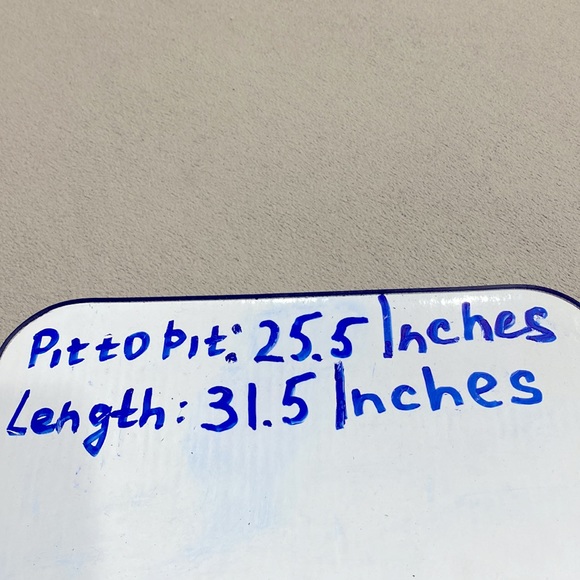 Pit to pit: 25.5 Inches
Length: 31.5 Inches